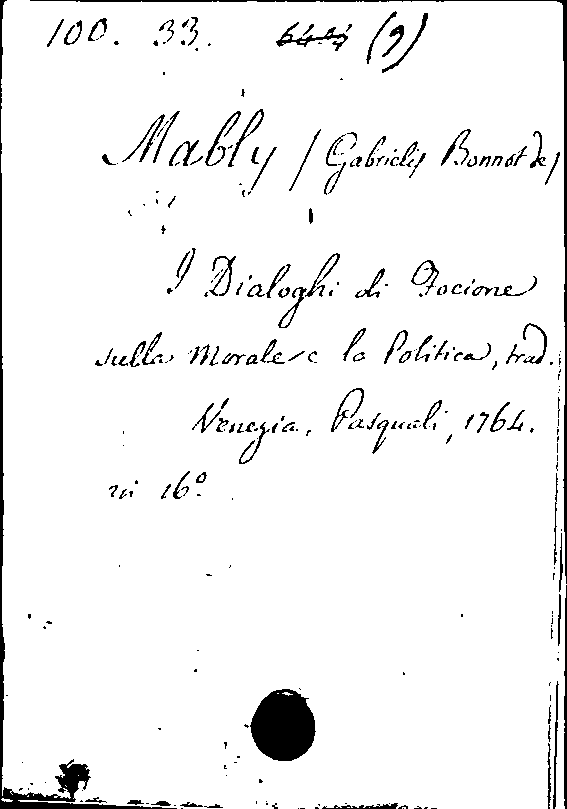 100. 33. (9)
Mably / Gabriel / Bonnot de /
I Dialoghi di Focione
sulla Morale e la Politica, trad.
Venezia, Pasquali, 1764.
in 16º.